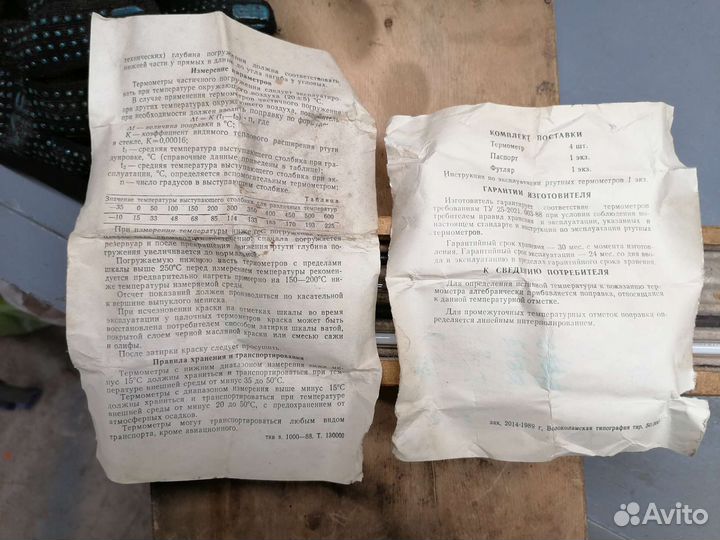 технических) глубина погружения должна соответствовать
нижней части у прямых и длине до угла изгиба у угловых.
Измерение параметров
Термометры частичного погружения следует эксплуатиро-
вать при температуре окружающего воздуха (20±5) °C.
В случае применения термометров частичного погружения
при других температурах окружающего воздуха,
при необходимости должен вводить поправку по формуле:
Δt = K (t₁—t₂) · n, где
Δt — величина поправки в °C;
K — коэффициент видимого теплового расширения ртути
в стекле, K=0,00016;
t₁ — средняя температура выступающего столбика при гра-
дуировке, °C (справочные данные приведены в таблице);
t₂ — средняя температура выступающего столбика при эк-
сплуатации, °C, определяется вспомогательным термометром;
n — число градусов в выступающем столбике.
Таблица
Значение температуры выступающего столбика для различных температур
—35 0 50 100 150 200 300 350 400 450 500 600
—10 15 33 48 68 85 114 170 193 225
При измерении температуры
резервуар и после погружается
погружения увеличивается до нормальной.
Погружаемую нижнюю часть термометров с пределами
шкалы выше 250°C перед измерением температуры рекомен-
дуется предварительно нагреть примерно на 150—200°C ни-
же температуры измеряемой среды.
Отсчет показаний должен производиться по касательной
к вершине выпуклого мениска.
При исчезновении краски на отметках шкалы во время
эксплуатации у палочных термометров краска может быть
восстановлена потребителем способом затирки шкалы ватой,
покрытой слоем черной масляной краски или смесью сажи
и олифы.
После затирки краску следует просушить.
Правила хранения и транспортирования
Термометры с нижним диапазоном измерения ниже ми-
нус 15°C должны храниться и транспортироваться при тем-
пературе внешней среды от минус 35 до 50°C.
Термометры с диапазоном измерения выше минус 15°C
должны храниться и транспортироваться при температуре
внешней среды от минус 20 до 50°C, с предохранением от
атмосферных осадков.
Термометры могут транспортироваться любым видом
транспорта, кроме авиационного.
тка з. 1000—88. Т. 130000
КОМПЛЕКТ ПОСТАВКИ
Термометр 4 шт.
Паспорт 1 экз.
Футляр 1 экз.
Инструкция по эксплуатации ртутных термометров 1 экз.
ГАРАНТИИ ИЗГОТОВИТЕЛЯ
Изготовитель гарантирует соответствие термометров
требованиям ТУ 25-2021. 003-88 при условии соблюдения по-
требителем правил хранения и эксплуатации, указанных в
настоящем стандарте и инструкции по эксплуатации ртутных
термометров.
Гарантийный срок хранения — 30 мес. с момента изготов-
ления. Гарантийный срок эксплуатации — 24 мес. со дня вво-
да в эксплуатацию в пределах гарантийного срока хранения.
К СВЕДЕНИЮ ПОТРЕБИТЕЛЯ
Для определения истинной температуры к показанию тер-
мометра алгебраически прибавляется поправка, относящаяся
к данной температурной отметке.
Для промежуточных температурных отметок поправки оп-
ределяется линейным интерполированием.
зак. 2014-1989 г, Волоколамская типография тир. 50.000
Avito